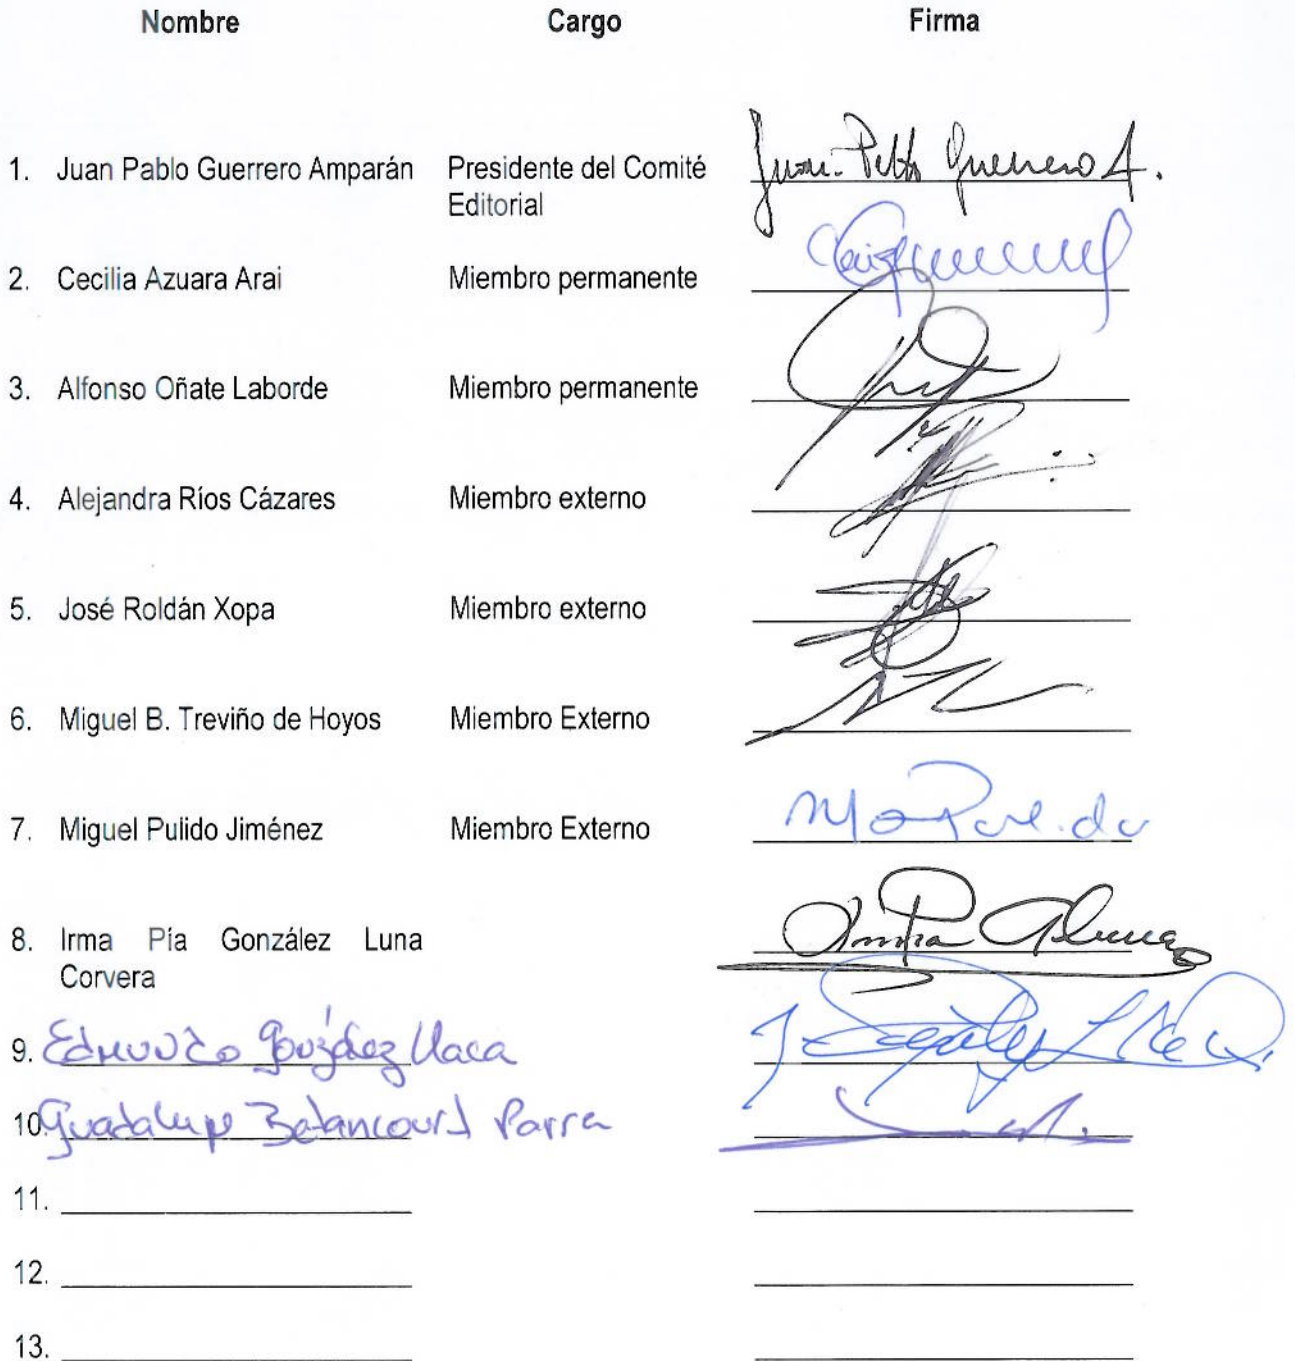 Nombre Cargo Firma
1. Juan Pablo Guerrero Amparán Presidente del Comité Juan Pablo Guerrero A.
Editorial
2. Cecilia Azuara Arai Miembro permanente
3. Alfonso Oñate Laborde Miembro permanente
4. Alejandra Ríos Cázares Miembro externo
5. José Roldán Xopa Miembro externo
6. Miguel B. Treviño de Hoyos Miembro Externo
7. Miguel Pulido Jiménez Miembro Externo
8. Irma Pía González Luna
Corvera
9. Edmundo González Llaca
10. Guadalupe Betancourt Parra
11.
12.
13.